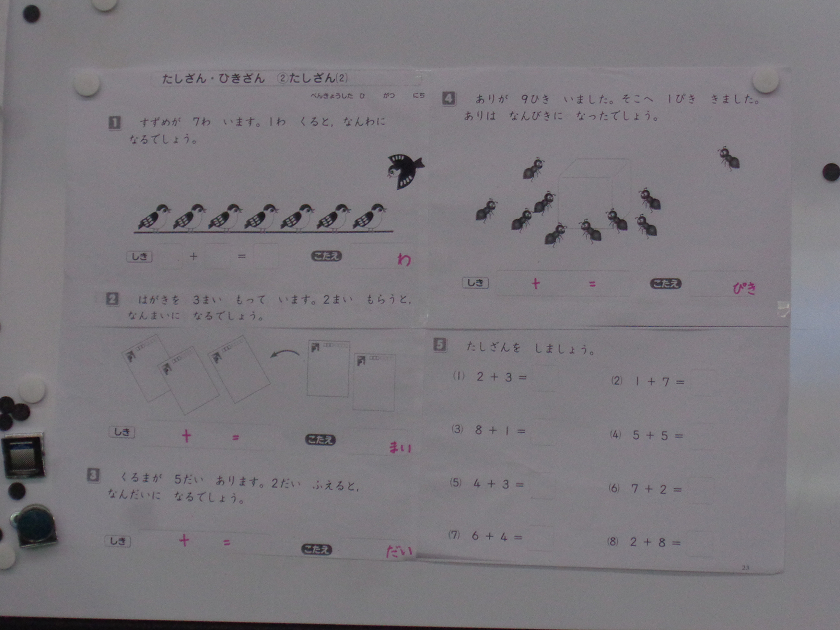 たしざん・ひきざん ②たしざん(2)
べんきょうした ひ がつ にち
1 すずめが 7わ います。1わ くると、なんわに
なるでしょう。
しき + = こたえ わ
2 はがきを 3まい もって います。2まい もらうと、
なんまいに なるでしょう。
しき + = こたえ まい
3 くるまが 5だい あります。2だい ふえると、
なんだいに なるでしょう。
しき + = こたえ だい
4 ありが 9ひき いました。そこへ 1ぴき きました。
ありは なんびきに なったでしょう。
しき + = こたえ ぴき
5 たしざんを しましょう。
(1) 2+3=
(2) 1+7=
(3) 8+1=
(4) 5+5=
(5) 4+3=
(6) 7+2=
(7) 6+4=
(8) 2+8=